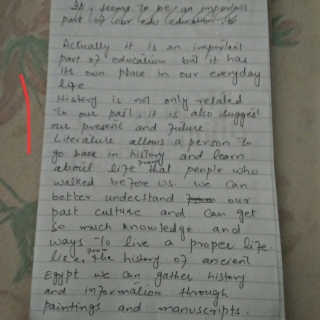 It, seems to be an important
part of our edu education.
Actually it is an important
part of education but it has
its own place in our everyday
life.
History is not only related
to our past, it is also suggest
our present and future.
Literature allows a person to
go back in history and learn
about life from that people who
walked before us. we can
better understand our
past culture and can get
so much knowledge and
ways to live a proper life.
like, from the history of ancient
Egypt we can gather history
and information through
paintings and manuscripts.